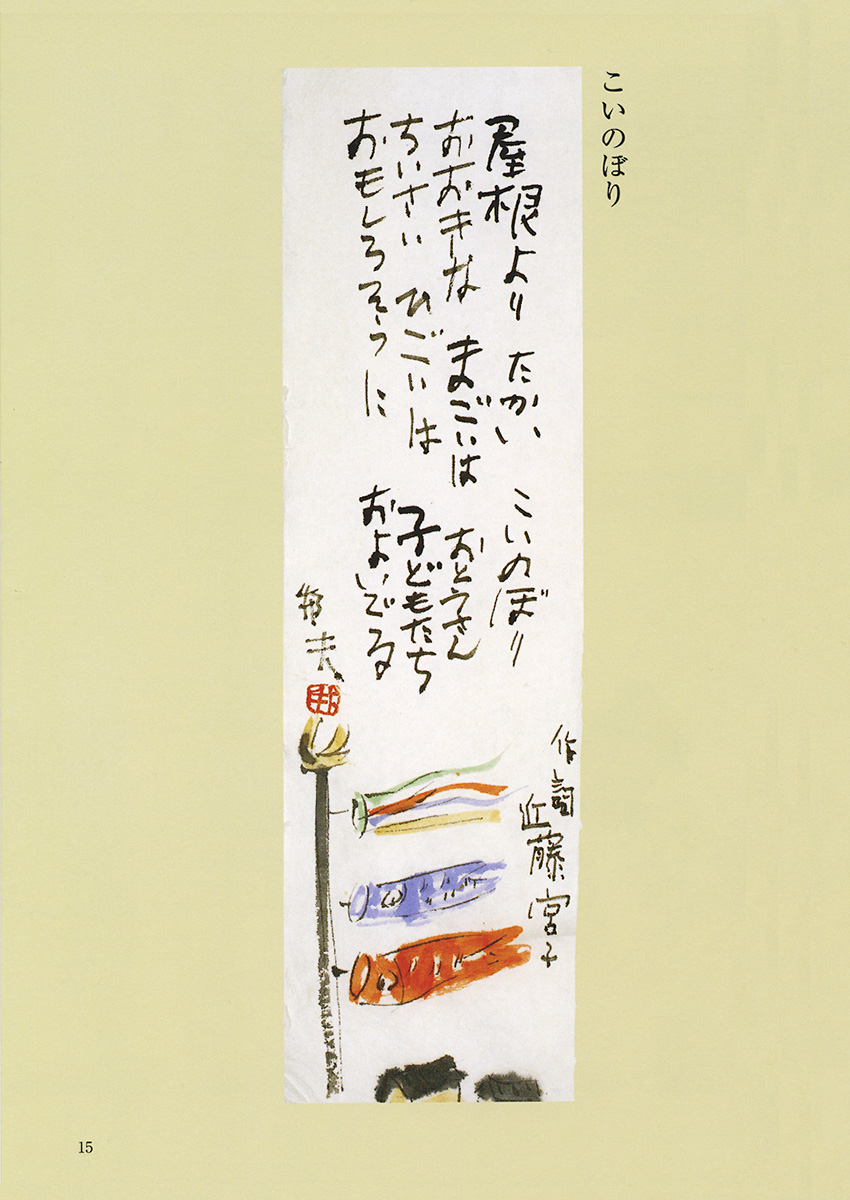 こいのぼり
屋根より たかい こいのぼり
おおきな まごいは おとうさん
ちいさい ひごいは 子どもたち
おもしろそうに およいでる
作詞
近藤宮子
邦夫
15